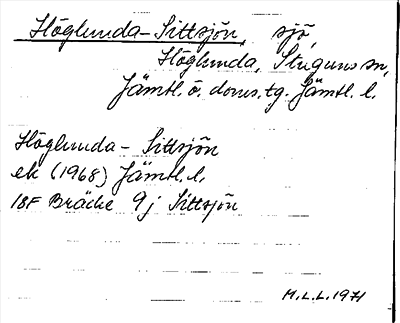 Höglunda-Sittsjön, sjö,
Höglunda, Stuguns sn,
Jämtl. ö. doms.tg. Jämtl. l.
Höglunda - Sittsjön
ek (1968) Jämtl. l.
18F Bräcke 9j Sittsjön
M.L.L. 1971